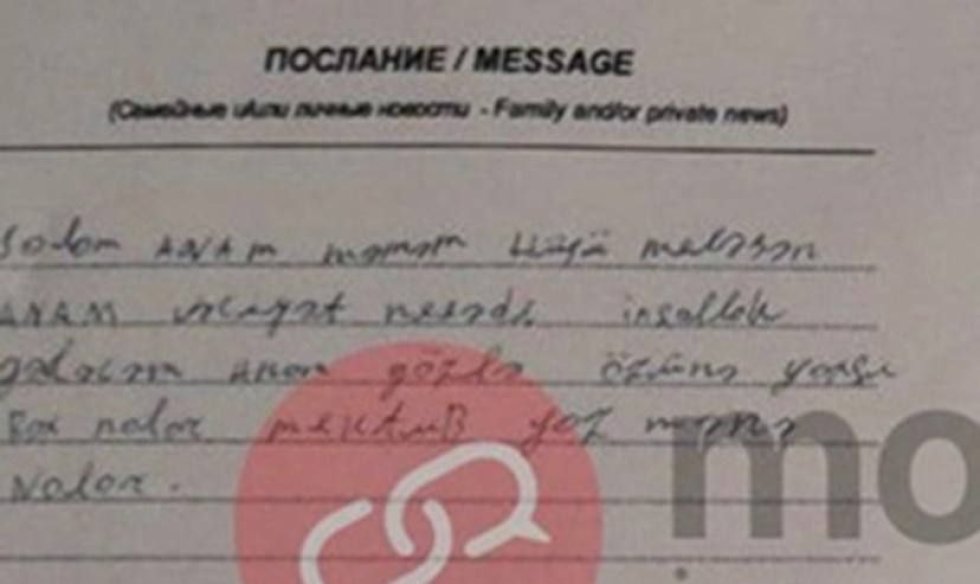 ПОСЛАНИЕ / MESSAGE
(Семейные и/или личные новости - Family and/or private news)
Solom ANAM momom
ANAM insallah
anam gözlə özünə yaxşı
Bax nolar mektuB yoz mənə
Nolar.
mo